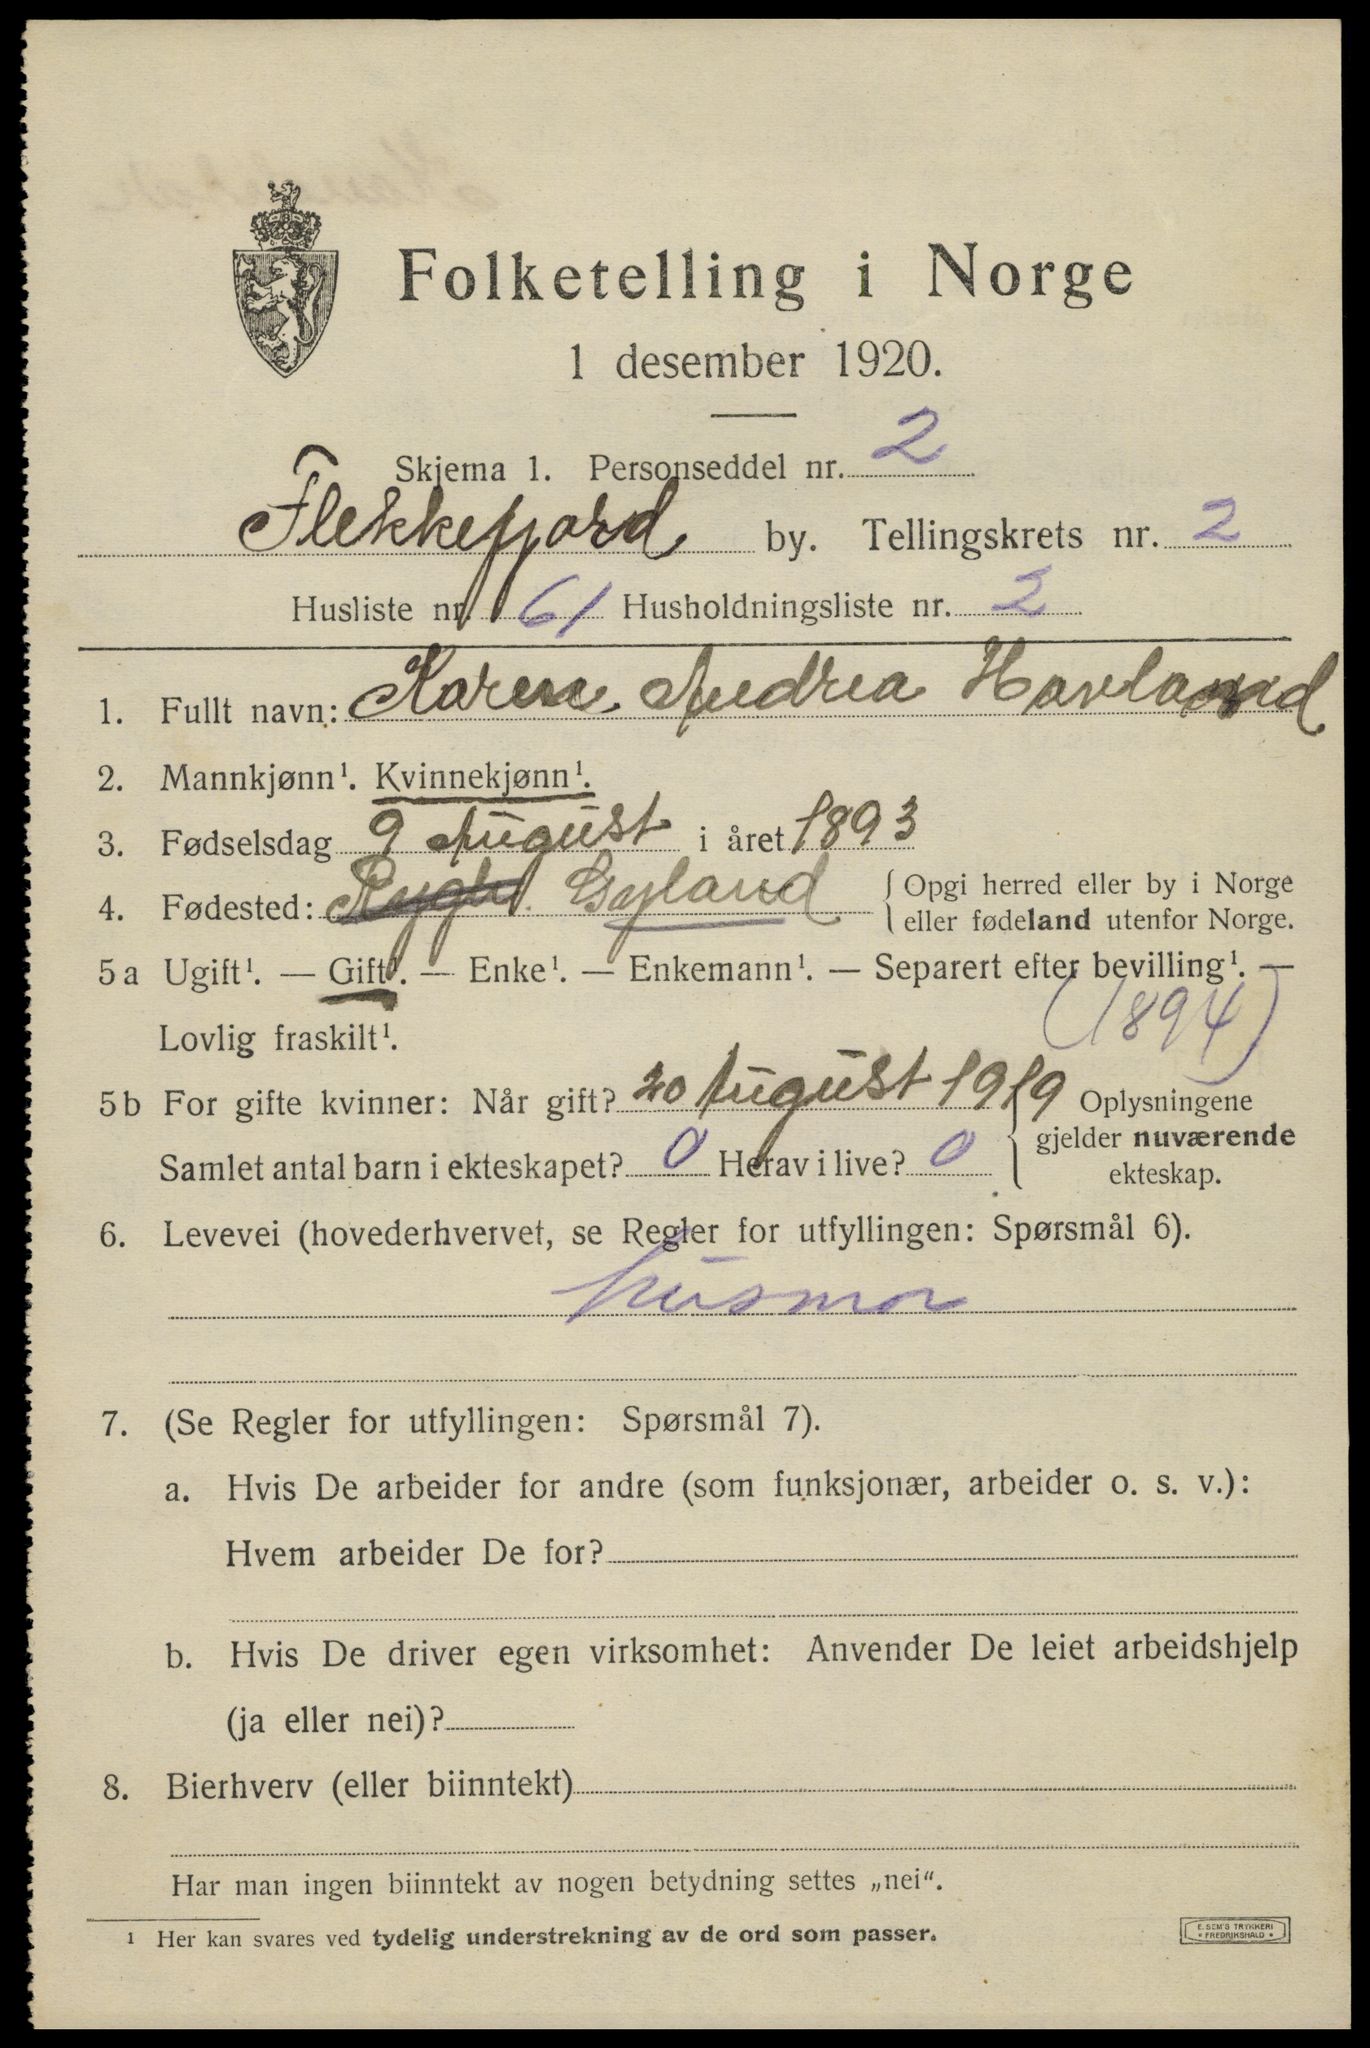 Folketelling i Norge
1 desember 1920.
Skjema 1. Personseddel nr. 2
Flekkefjord by. Tellingskrets nr. 2
Husliste nr. 61 Husholdningsliste nr. 2
1. Fullt navn: Karen Andrea Havland
2. Mannkjønn¹. Kvinnekjønn¹.
3. Fødselsdag 9 August i året 1893
4. Fødested: Gyland { Opgi herred eller by i Norge
eller fødeland utenfor Norge.
5a Ugift¹. — Gift¹. — Enke¹. — Enkemann¹. — Separert efter bevilling¹. —
Lovlig fraskilt¹. (1894)
5b For gifte kvinner: Når gift? 20 August 1919 { Oplysningene
gjelder nuværende
Samlet antal barn i ekteskapet? 0 Herav i live? 0
ekteskap.
6. Levevei (hovederhvervet, se Regler for utfyllingen: Spørsmål 6).
husmor
7. (Se Regler for utfyllingen: Spørsmål 7).
a. Hvis De arbeider for andre (som funksjonær, arbeider o. s. v.):
Hvem arbeider De for?
b. Hvis De driver egen virksomhet: Anvender De leiet arbeidshjelp
(ja eller nei)?
8. Bierhverv (eller biinntekt)
Har man ingen biinntekt av nogen betydning settes „nei“.
¹ Her kan svares ved tydelig understrekning av de ord som passer.
E. SEM'S TRYKKERI
* FREDRIKSHALD *